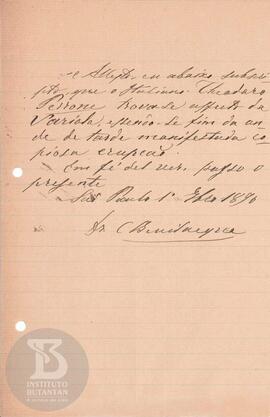 Attesto eu abaixo subscri-
pto que o Italiano Theodoro
Perrone acha-se affecto da
Variola, e sendo-se
de de tarde manifestada co-
piosa erupção.
Em fé del ver. passo o
presente
São Paulo 1º 1890
Dr C
INSTITUTO
BUTANTAN